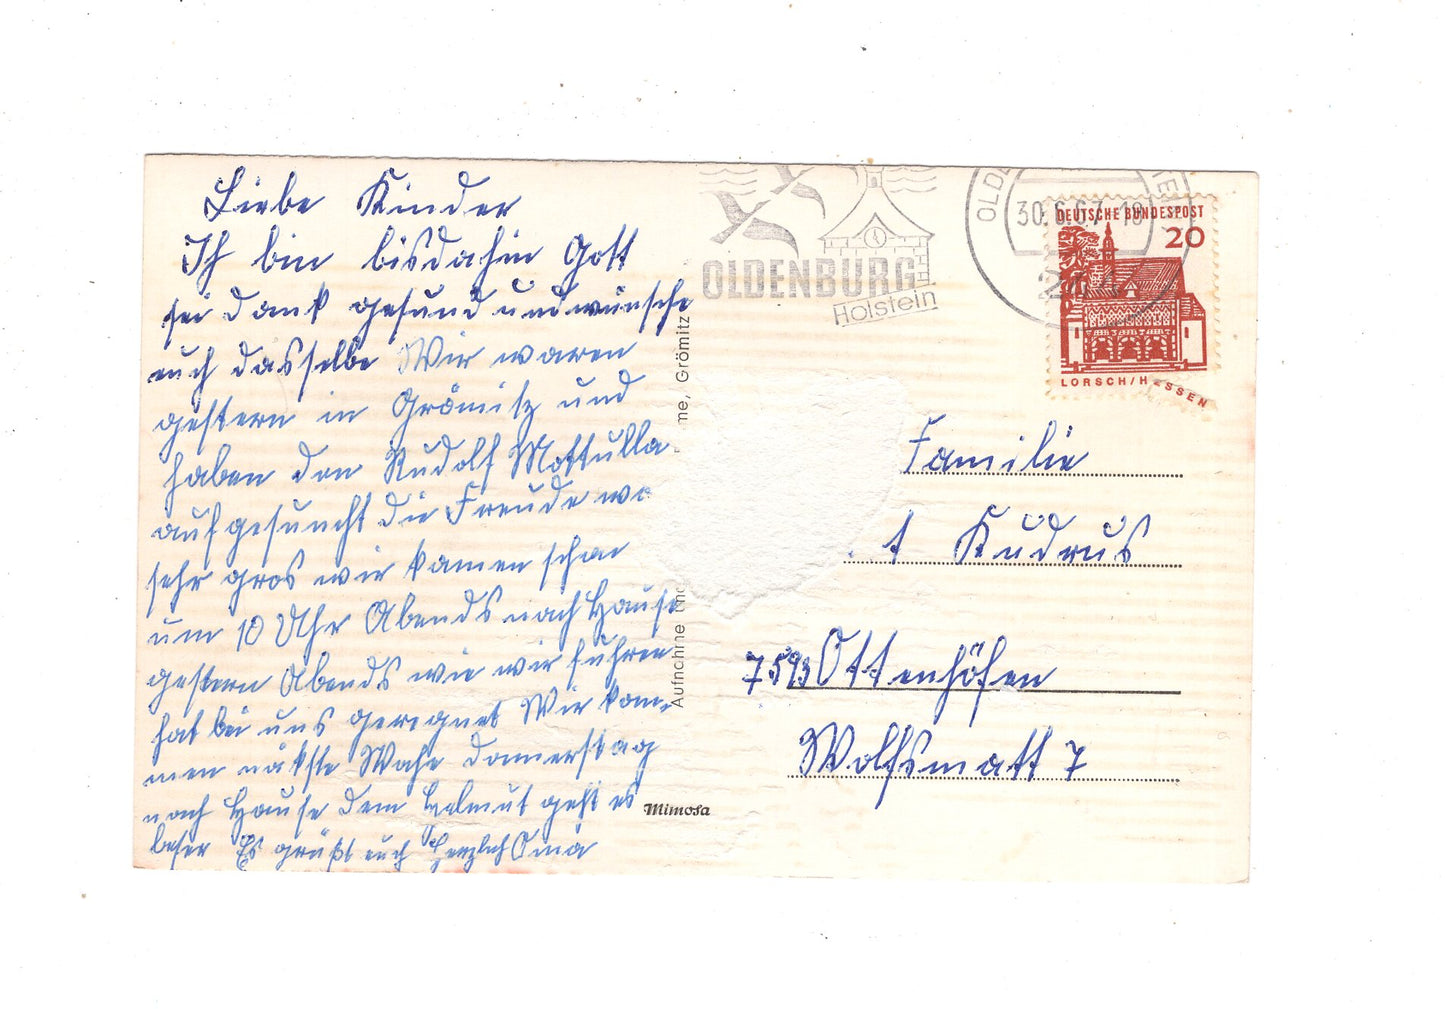 Liebe Kinder
Ich bin bisdahin Gott
sei dank gesund und wünsche
euch dasselbe Wir waren
gestern in Grömitz und
haben den Rudolf Mottulla
aufgesuncht die Freude wa
sehr gros wir kamen schon
um 10 Uhr Abends nach Hause
gestern Abends wie wir fuhren
hat bei uns geregnet Wir kom-
men näkste Wohe Donnerstag
nach Hause dem Helmut geht es
beser Es grüßt euch Herzlich Oma
OLDENBURG
Holstein
30.6.67-18
DEUTSCHE BUNDESPOST
20
LORSCH/HESSEN
me, Grömitz
Aufnahme und
Mimosa
Familie
t Kudrus
7593 Ottenhöfen
Wolfsmatt 7